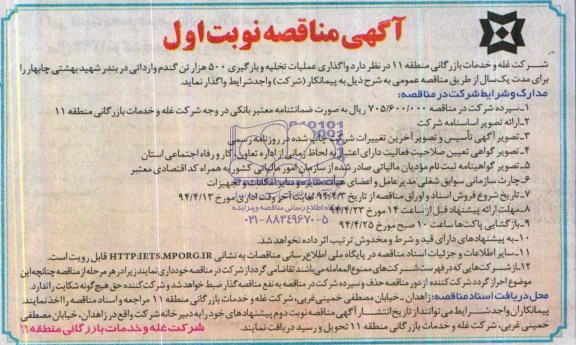 آگهی مناقصه نوبت اول
شرکت غله و خدمات بازرگانی منطقه ۱۱ در نظر دارد واگذاری عملیات تخلیه و بارگیری ۵۰۰ هزار تن گندم وارداتی در بندر شهید بهشتی چابهار را
برای مدت یک سال از طریق مناقصه عمومی به شرح ذیل به پیمانکار (شرکت) واجد شرایط واگذار نماید.
مدارک و شرایط شرکت در مناقصه:
۱- سپرده شرکت در مناقصه ۷۰۵/۶۰۰/۰۰۰ ریال به صورت ضمانتنامه معتبر بانکی در وجه شرکت غله و خدمات بازرگانی منطقه ۱۱
۲- ارائه تصویر اساسنامه شرکت
۳- تصویر آگهی تأسیس و تصویر آخرین تغییرات شرکت چاپ شده در روزنامه رسمی
۴- تصویر گواهی تعیین صلاحیت فعالیت دارای اعتبار به لحاظ زمانی از اداره تعاون، کار و رفاه اجتماعی استان
۵- تصویر گواهینامه ثبت نام مؤدیان مالیاتی صادر شده از سازمان امور مالیاتی کشور به همراه کد اقتصادی معتبر
۶- چارت سازمانی سوابق شغلی مدیرعامل و اعضای هیأت مدیره و سایر امکانات و تجهیزات
۷- تاریخ شروع فروش اسناد و اوراق مناقصه از تاریخ ۹۴/۴/۳ لغایت آخر وقت اداری مورخ ۹۴/۴/۱۳
۸- مهلت ارائه پیشنهاد قبل از ساعت ۱۴ مورخ ۹۴/۴/۲۳
پایگاه اطلاع رسانی مناقصه و مزایده
۰۲۱-۸۸۳۴۹۶۷۰-۵
۹- بازگشایی پاکت‌ها ساعت ۱۰ صبح مورخ ۹۴/۴/۲۵
۱۰- به پیشنهادهای دارای قید و شرط و مخدوش ترتیب اثر داده نخواهد شد.
۱۱- سایر اطلاعات و جزئیات اسناد مناقصه در پایگاه ملی اطلاع رسانی مناقصات به نشانی HTTP:IETS.MPORG.IR قابل رویت است.
۱۲- از شرکت‌هایی که در فهرست شرکت‌های ممنوع المعامله می‌باشند تقاضا می گردد از شرکت در مناقصه خودداری نمایند زیرا در هر مرحله از مناقصه چنانچه این
موضوع احراز گردد شرکت کننده از دور مناقصه حذف و سپرده شرکت در مناقصه به نفع مناقصه گذار ضبط خواهد شد و شرکت کننده حق هیچ گونه شکایت را ندارد.
محل دریافت اسناد مناقصه: زاهدان - خیابان مصطفی خمینی غربی، شرکت غله و خدمات بازرگانی منطقه ۱۱ مراجعه و اسناد مناقصه را اخذ نمایند.
پیمانکاران واجد شرایط می توانند از تاریخ انتشار آگهی مناقصه نوبت دوم پیشنهادهای خود را به دبیرخانه شرکت واقع در زاهدان، خیابان مصطفی
خمینی غربی، شرکت غله و خدمات بازرگانی منطقه ۱۱ تحویل و رسید دریافت نمایند.
شرکت غله و خدمات بازرگانی منطقه ۱۱